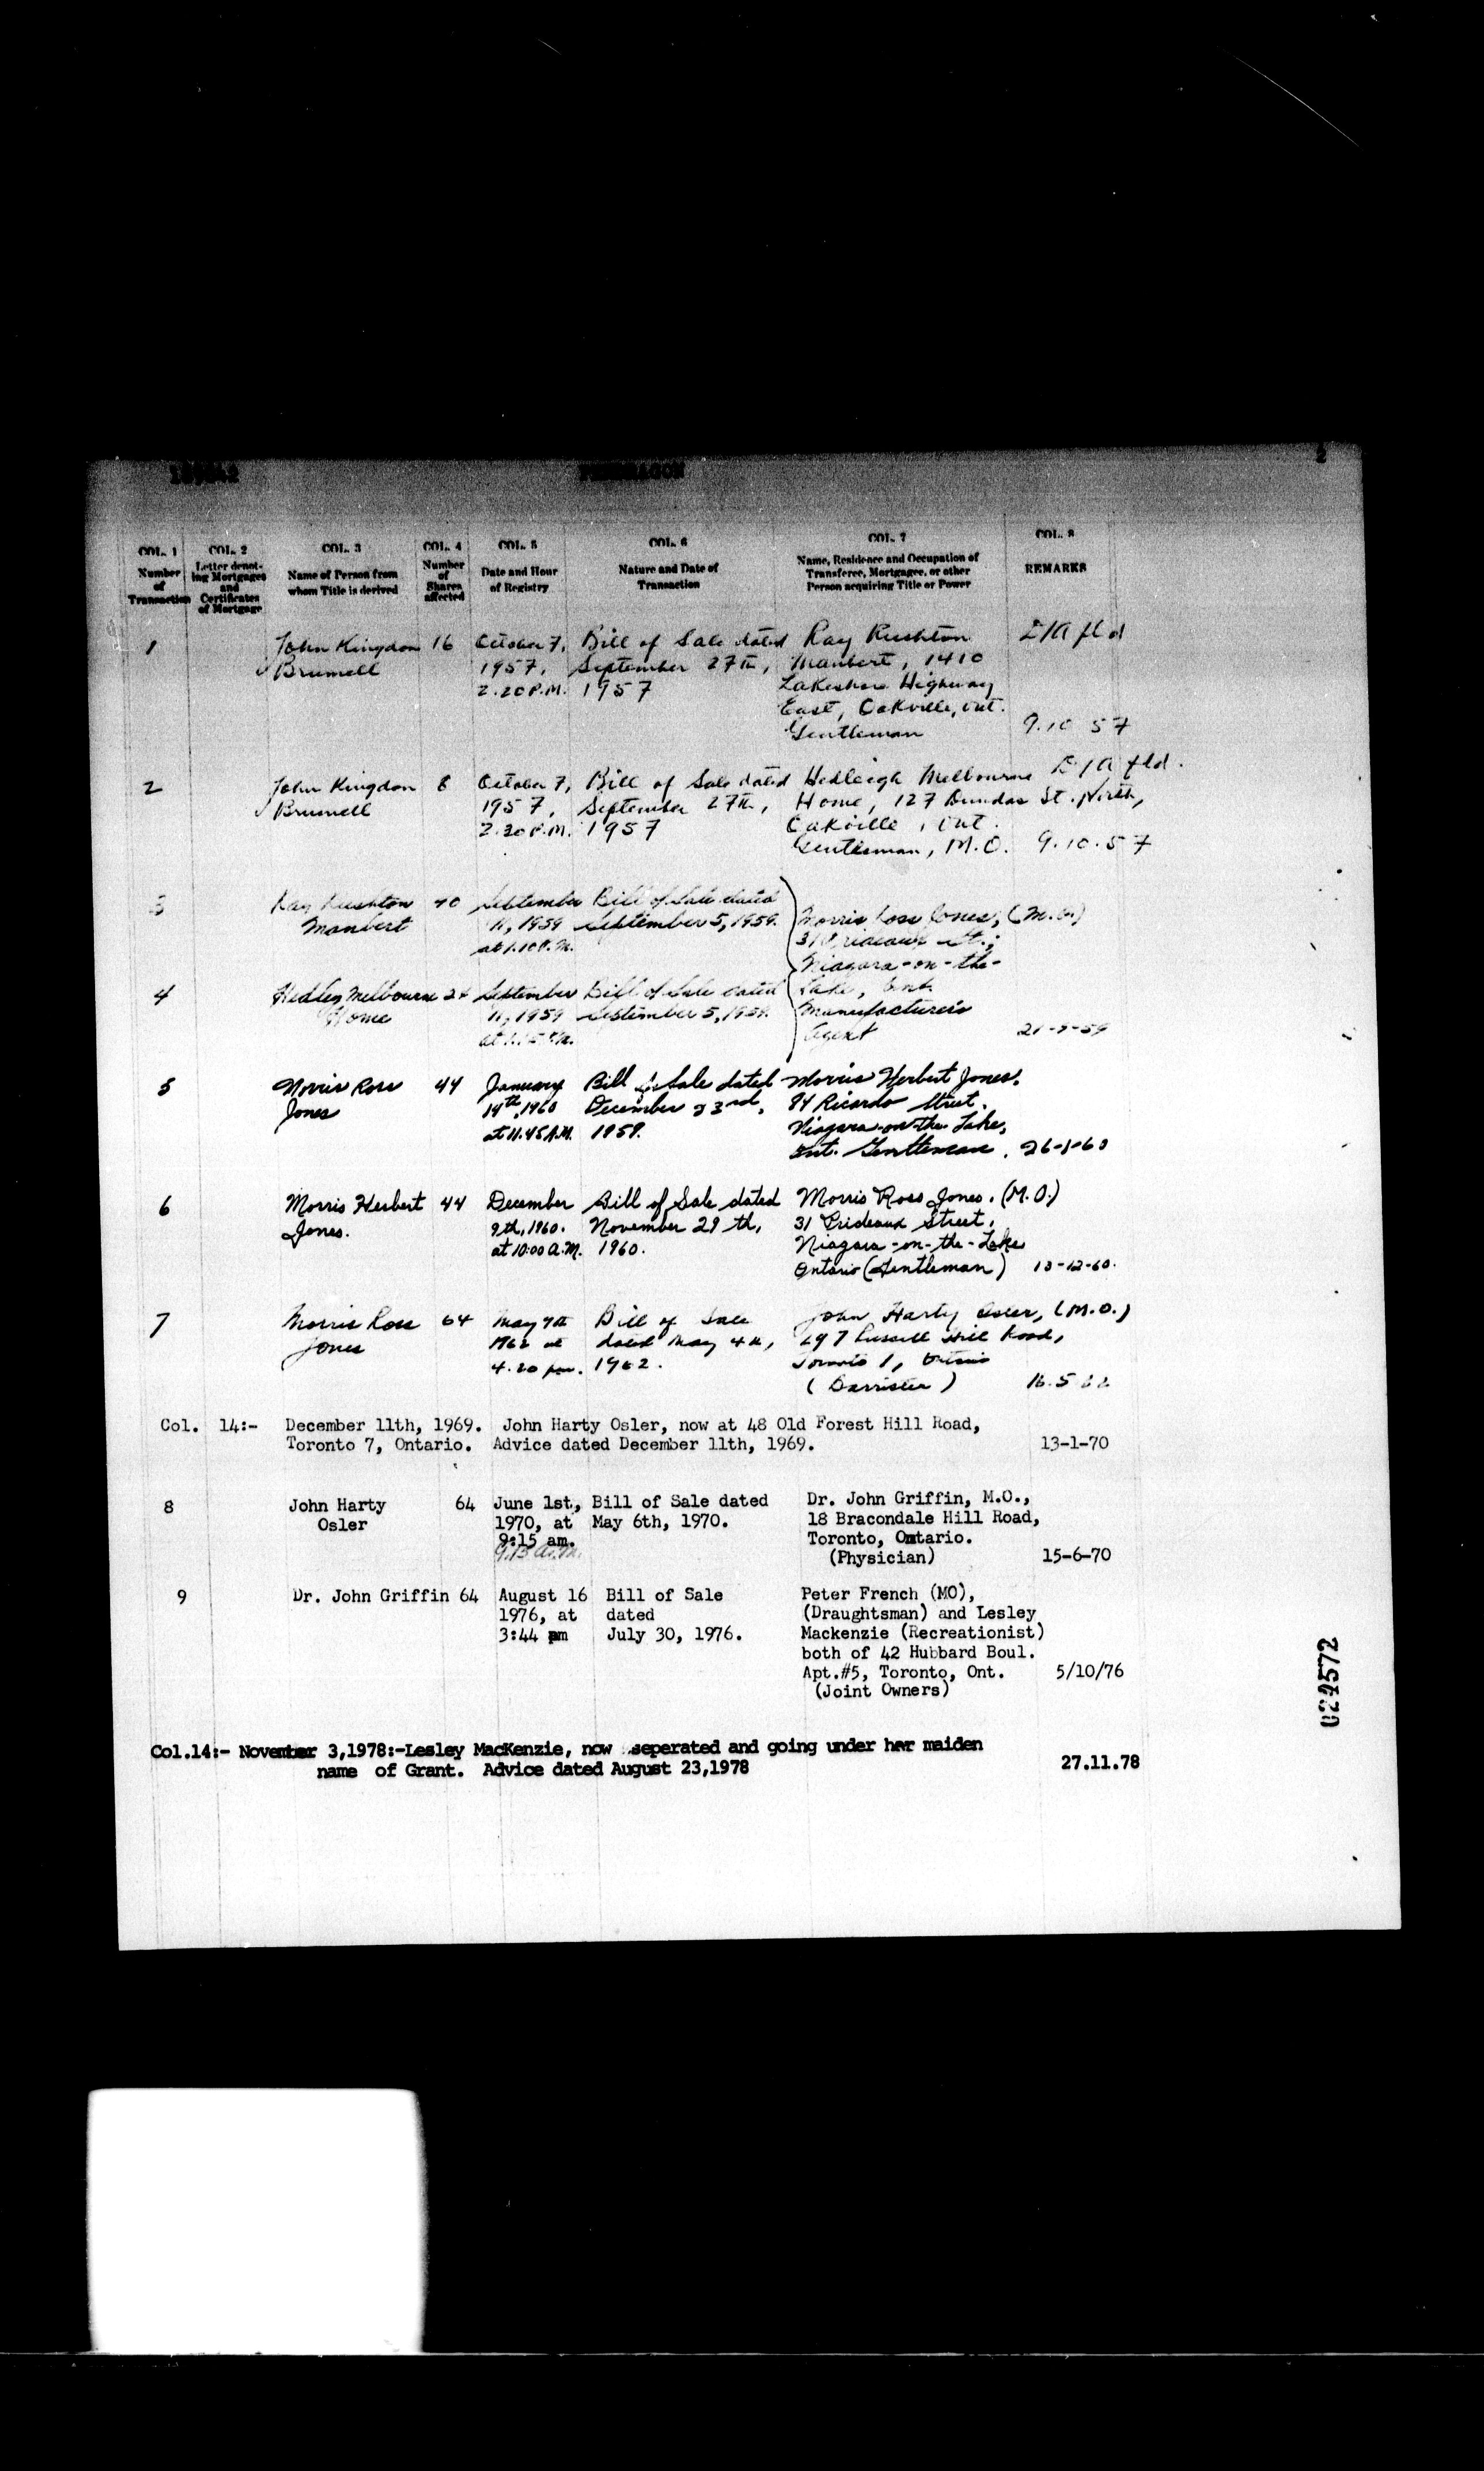 2
COL. 1 COL. 2 COL. 3 COL. 4 COL. 5 COL. 6 COL. 7 COL. 8
Number of Transaction
Letter denot-
ing Mortgages
and
Certificates
of Mortgage
Name of Person from
whom Title is derived
Number
of
Shares
affected
Date and Hour
of Registry
Nature and Date of
Transaction
Name, Residence and Occupation of
Transferee, Mortgagee, or other
Person acquiring Title or Power
REMARKS
1 John Kingdon 16 October 7, Bill of Sale dated Ray Rushton
Brumell 1957, September 27th, Manbert, 1410
2.20 P.M. 1957 Lakeshore Highway
East, Oakville, Ont.
Gentleman 9.10 57
2 John Kingdon 8 October 7, Bill of Sale dated Hedleigh Melbourne
Brumell 1957, September 27th, Home, 127 Dundas St. North,
2.30 P.M. 1957 Oakville, Ont.
Gentleman, M.O. 9.10.57
3 Ray Rushton 40 September Bill of Sale dated
Manbert 11, 1959 September 5, 1959. Morris Ross Jones, (M.O.)
at 1.10 P.M. St.;
Niagara-on-the-
4 Hedley Melbourne 24 September Bill of Sale dated Lake, Ont.
Home 11, 1959 September 5, 1959. Manufacturer's
Agent 21-9-59
5 Morris Ross 44 January Bill of Sale dated Morris Herbert Jones.
Jones 14th, 1960 December 23rd, 84 Ricardo Street.
at 11.45 A.M. 1959. Niagara-on-the-Lake,
Ont. Gentleman. 26-1-60
6 Morris Herbert 44 December Bill of Sale dated Morris Ross Jones. (M.O.)
Jones. 9th, 1960. November 29th, 31 Prideaux Street.
at 10:00 A.M. 1960. Niagara-on-the-Lake
Ontario (Gentleman) 13-12-60.
7 Morris Ross 64 May 9th Bill of Sale John Harty Osler, (M.O.)
Jones 1962 at dated May 4th, 297 Russell Hill Road,
4.20 pm. 1962. Toronto 1, Ontario
(Barrister) 16.5.62
Col. 14:- December 11th, 1969. John Harty Osler, now at 48 Old Forest Hill Road,
Toronto 7, Ontario. Advice dated December 11th, 1969. 13-1-70
8 John Harty 64 June 1st, Bill of Sale dated Dr. John Griffin, M.O.,
Osler 1970, at May 6th, 1970. 18 Bracondale Hill Road,
9:15 am. Toronto, Ontario.
9.15 a.m. (Physician) 15-6-70
9 Dr. John Griffin 64 August 16 Bill of Sale Peter French (MO),
1976, at dated (Draughtsman) and Lesley
3:44 pm July 30, 1976. Mackenzie (Recreationist)
both of 42 Hubbard Boul.
Apt.#5, Toronto, Ont. 5/10/76
(Joint Owners)
Col.14:- November 3,1978:-Lesley MacKenzie, now seperated and going under her maiden
name of Grant. Advice dated August 23,1978 27.11.78
024572